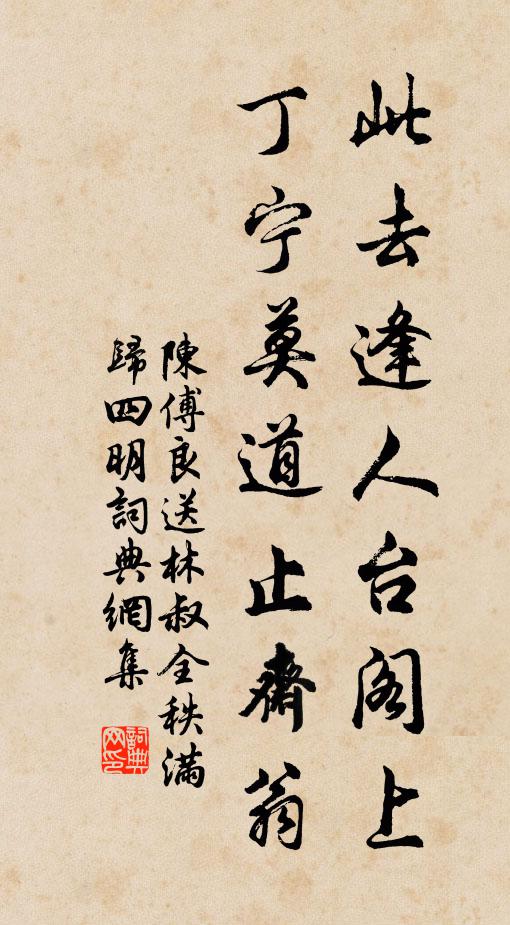 此去逢人台阁上
丁宁莫道止齋翁
陳傅良送林叔全秩滿
歸四明詞典網集
詞典
网印